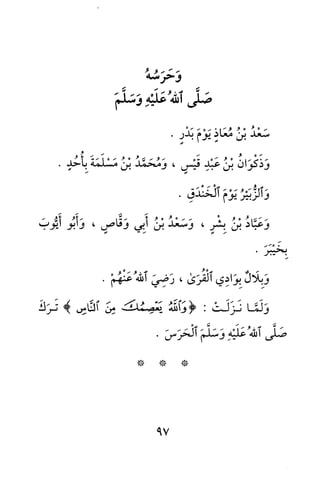 وَحَرَسُهُ
صَلَّى ٱللهُ عَلَيْهِ وَسَلَّمَ
سَعْدُ بْنُ مُعَاذٍ يَوْمَ بَدْرٍ .
وَذَكْوَانُ بْنُ عَبْدِ قَيْسٍ ، وَمُحَمَّدُ بْنُ مَسْلَمَةَ بِأُحُدٍ .
وَٱلزُّبَيْرُ يَوْمَ ٱلْخَنْدَقِ .
وَعَبَّادُ بْنُ بِشْرٍ ، وَسَعْدُ بْنُ أَبِي وَقَّاصٍ ، وَأَبُو أَيُّوبَ
بِخَيْبَرَ .
وَبِلَالٌ بِوَادِي ٱلْقُرَىٰ ، رَضِيَ ٱللهُ عَنْهُمْ .
وَلَمَّا نَزَلَتْ : ﴿ وَٱللَّهُ يَعْصِمُكَ مِنَ ٱلنَّاسِ ﴾ تَرَكَ
صَلَّى ٱللهُ عَلَيْهِ وَسَلَّمَ ٱلْحَرَسَ .
* * *
٩٧